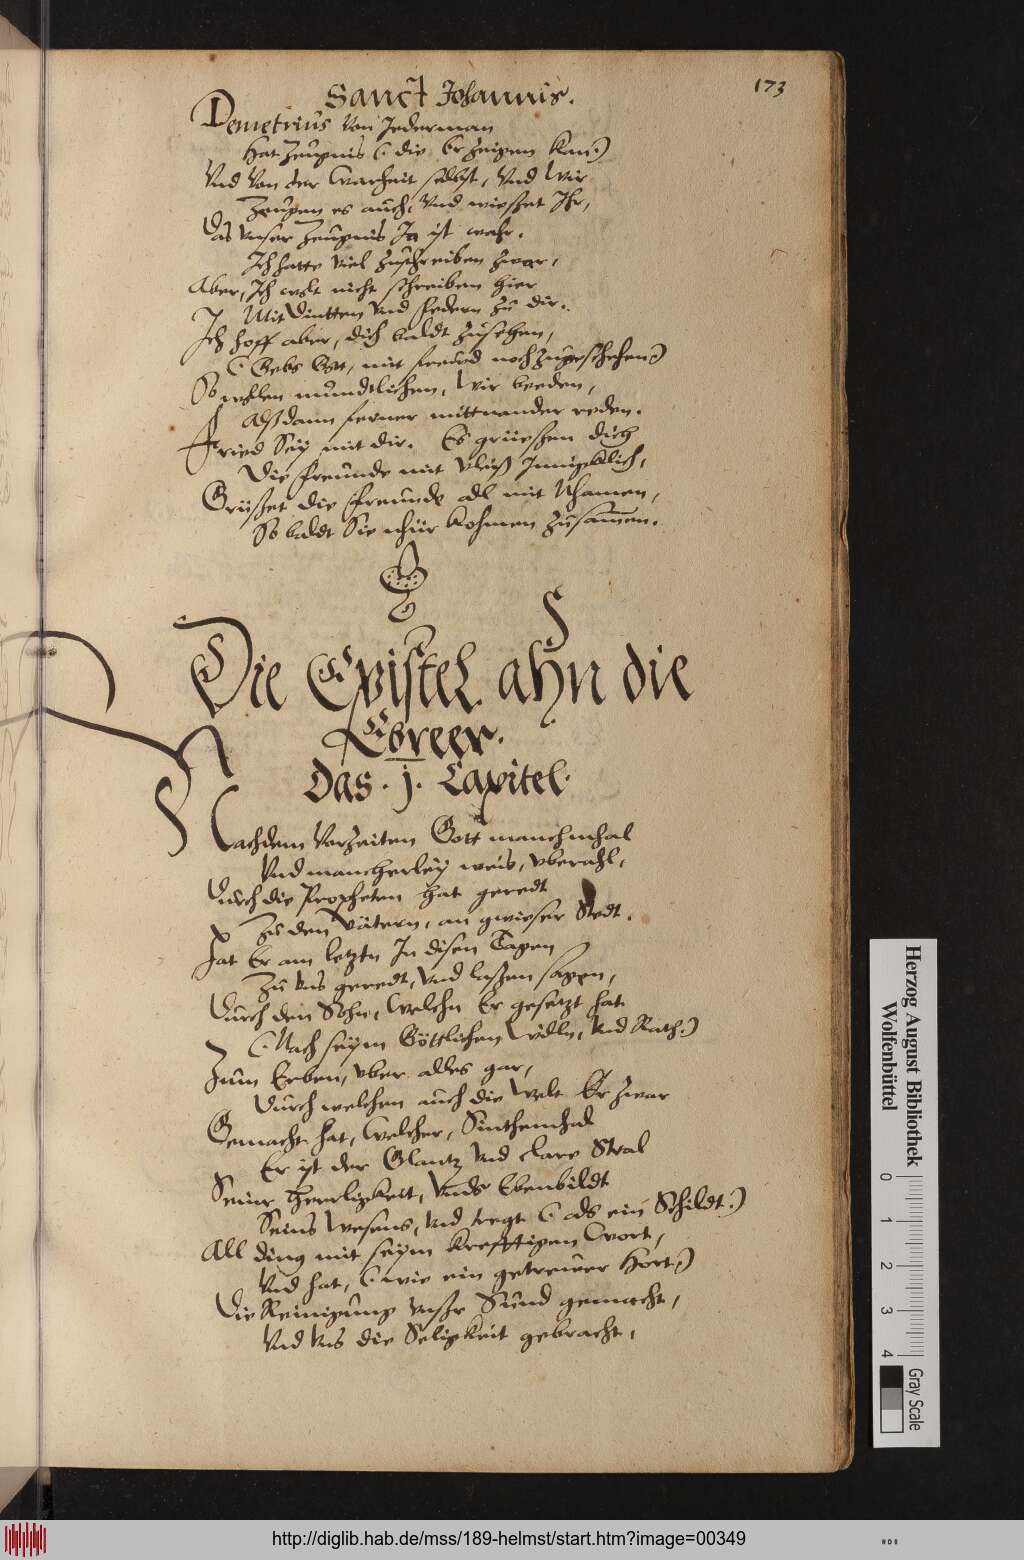 173
Sanct Johannis.
Demetrius Von Jederman
Hat Zeugnis (: die Er Zeigen Kan:)
Vnd Von der Warheit selbst, Vnd Wir
Zeugen es auch, Vnd wisset Ihr,
Das Vnser Zeugnis Ja ist wahr.
Ich hatte Viel Zuschreiben Zwar,
Aber, Ich wolt nicht schreiben hier
Mit Dintten Vnd Federn Zu dir.
Ich hoff aber, dich baldt Zusehen,
(: Gebs Gott, mit freud noch Zugeschehen:)
So wollen mundtlichen, Wir beeden,
Alßdann ferner mittnander reden.
Fried Sey mit dir. Es grüessen dich
Die freunde mit Vleiß Jnnigklich,
Grüsset die freunde all mit Nhamen,
So baldt Sie nhür Kohmen Zusamen.
Die Epistel ahn die
Ebreer.
Das . j . Capitel.
Nachdem Vorzeiten Gott manchmhal
Vnd mancherley weis, vberahl,
Durch die Propheten hat geredt
Zu den Vätern, an gwieser Stedt.
Hat Er am letztn In disen Tagen
Zu Vns geredt, Vnd lassen sagen,
Durch den Sohn, Welchn Er gesetzt hat
(: Nach seinem Göttlichen Willn, Vnd Rath:)
Zum Erben, vber alles gar,
Durch welchen auch die Welt Er Zwar
Gemacht hat, Welcher, Sintenmhal
Er ist der Glantz Vnd clare Stral
Seiner Herrligkeit, Vnds Ebenbildt
Seins Wesens, Vnd tregt (: als ein Schildt:)
All ding mit seim krefftigen Wort,
Vnd hat, (: wie ein getrewer Hort:)
Die Reinigung Vnsr Sünd gemacht,
Vnd Vns die Seligkeit gebracht,
Herzog August Bibliothek
Wolfenbüttel
0 1 2 3 4
Gray Scale
http://diglib.hab.de/mss/189-helmst/start.htm?image=00349